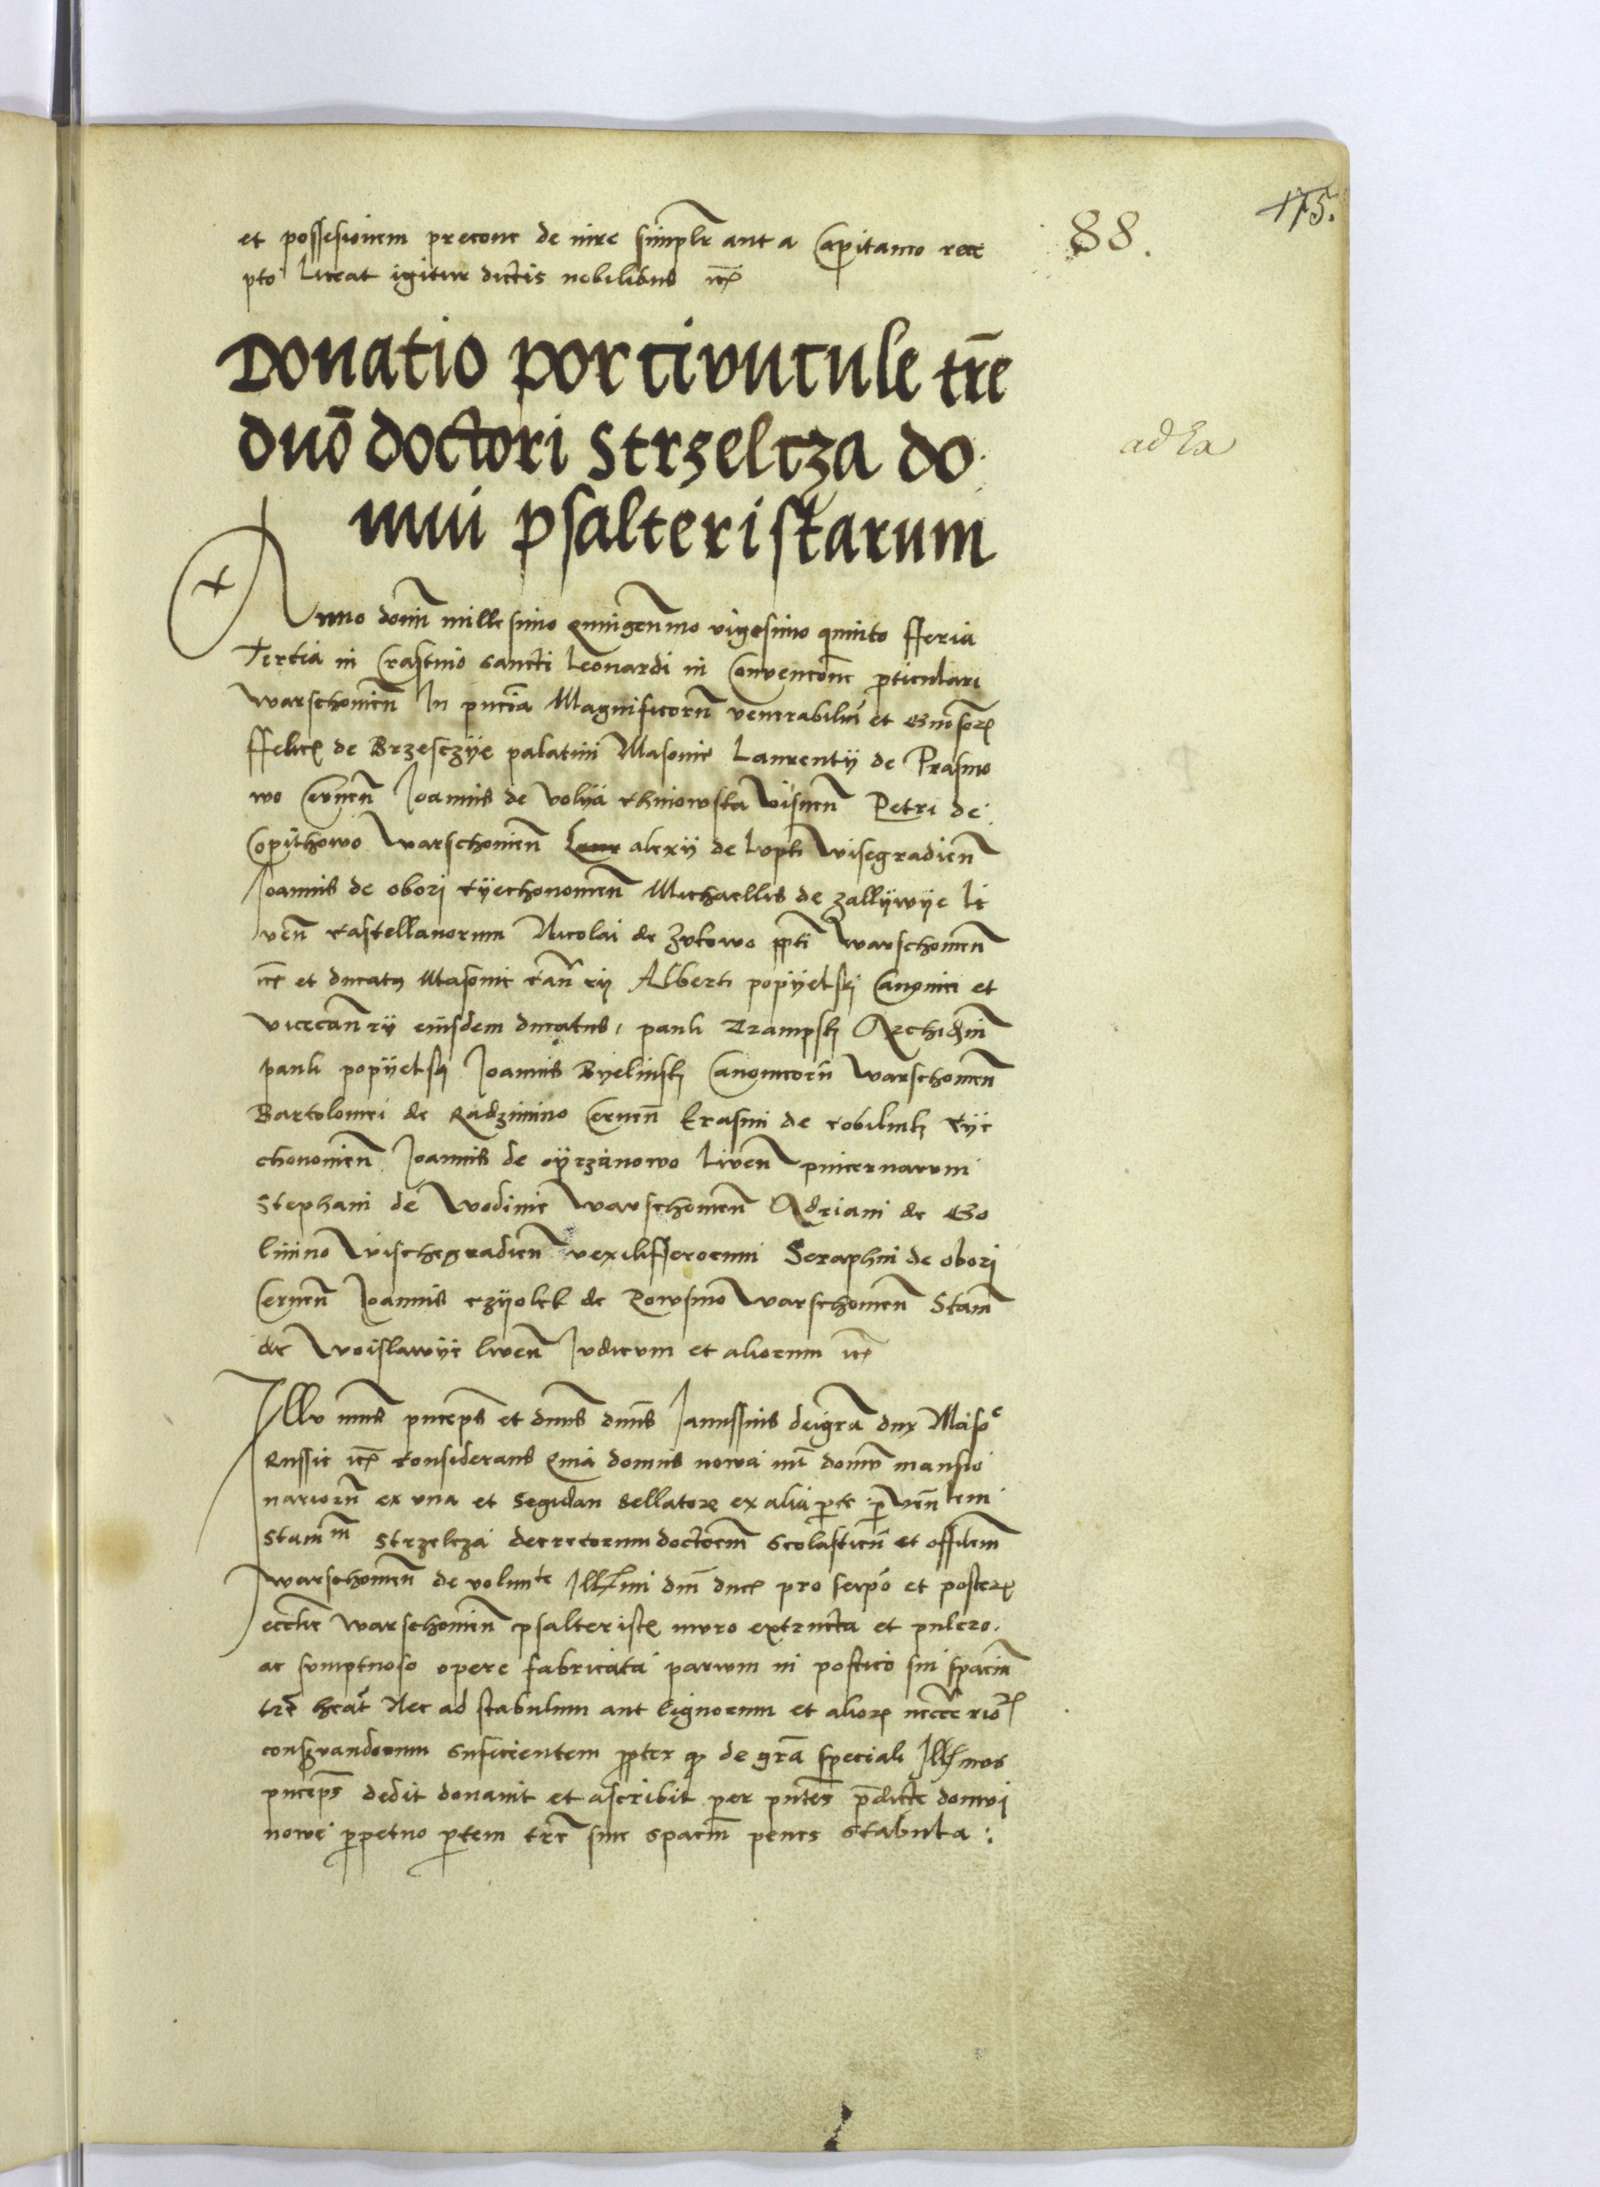 175.
88.
et possesionem precone de iure simplr aut a Capitaneo rece
pto liceat igitur dictis nobilibus etc
Donatio portiuncule tre
duo doctori Strzeltza do
mui psalteristarum
ad Ea
Anno domi millesimo quingenmo vigesimo quinto fferia
Tertia in Crastino sancti Leonardi in Conuencone pticulari
Warschouien In pncia Magnificorum venerabiliu et Gnosorz
ffelicz de Brzesczÿe palatini Masouie Laurentÿ de Prasmo
wo Cernen Joannis de volÿa chniowska visnen Petri de
Copÿthowo Warschouien alexÿ de lupki Wisegradien
Joannis de obori cÿechonouien Michaellis de zallÿwÿe li
uen castellanorum Nicolai de Zukowo ppti Warschouien
etc et ducatus Masouie canrÿ Alberti popÿelski Canonici et
vicecanrÿ eiusdem ducatus pauli Zrampski Archidni
pauli popÿelski Joannis Bÿelinski Canonicoru Warschouien
Bartolomei de Radzimino Cernen Erasmi de cobilnki cÿe
chonouien Joannis de oÿrzanowo liuen pincernarum
Stephani de Wodinie Warschouien Adriani de Go
limino Vischegradien vexilifferorum Seraphini de obori
Cernen Joannis czÿolek de Rowsino Warschouien Stani
de Woislawÿe liuen Judicum et aliorum etc
Illu mus pnceps et duus dnus Janussius deigra dux Maso
Russie etc considerans quia domus nowa int domu mansio
narioru ex vna et Segidan sellatorz ex alia pte p ven lem
Stam m Strzelcza decretorum doctorem scolasticu et officem
Warschouien de volunte Illmi dni ducz pro serpo et posterz
ecclie Warschouien psalteriste muro extructa et pulcro
ac sumptuoso opere fabricata parum in postico sui spaciu
tre heat Nec ad stabulum aut lignorum et aliorz necceriorz
conseruandorum suficientem ppter qd de gra speciali Illmus
pnceps dedit donauit et ascribit per pntes pdicte domui
nowe ppetuo ptem tre sue spacm penes stabula :